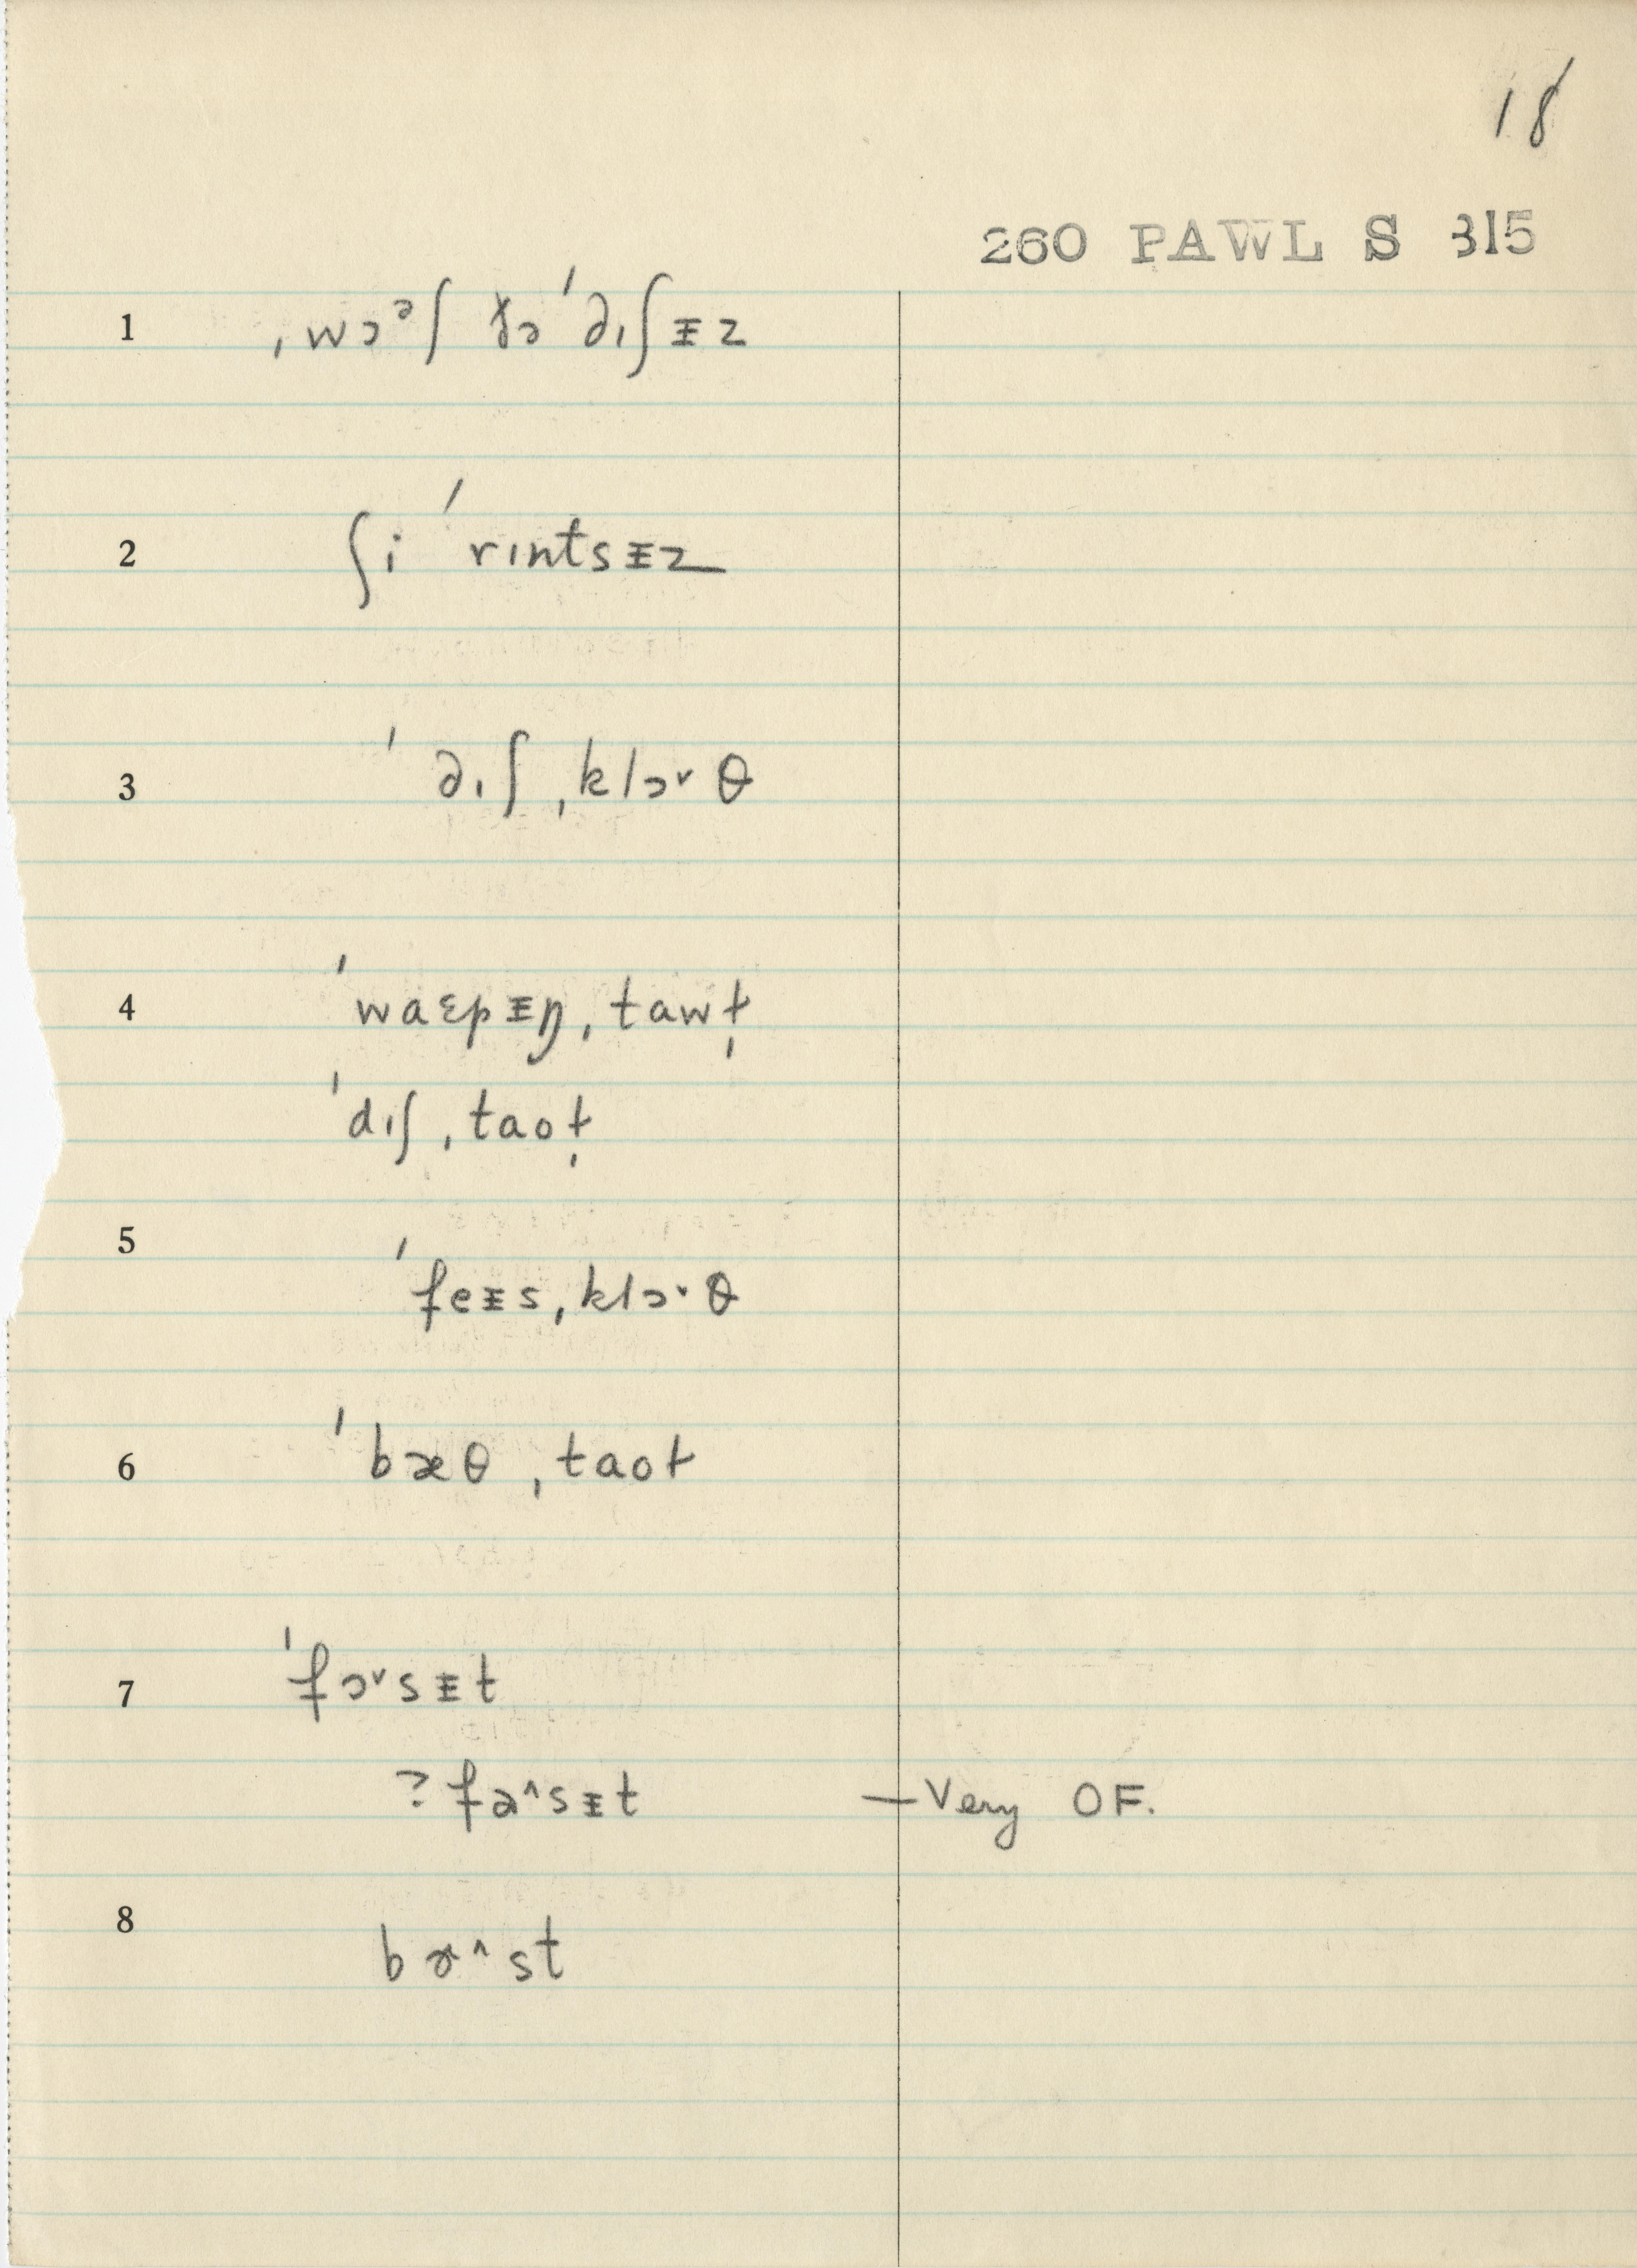 18
260 PAWL S 315
1 ˌwɔᵊʃ ðə ˈdɪʃɪ̵z
2 ʃi ˈrɪntsɪ̵z
3 ˈdɪʃˌklɔ˅θ
4 ˈwaɛpɪ̵ŋˌtawɫ̩
ˈdɪʃˌtaoɫ̩
5 ˈfeɪ̵sˌklɔ˅θ
6 ˈbæθˌtaoɫ
7 ˈfɔ˅sɪ̵t
? fa^sɪ̵t — Very OF.
8 bɚ^st